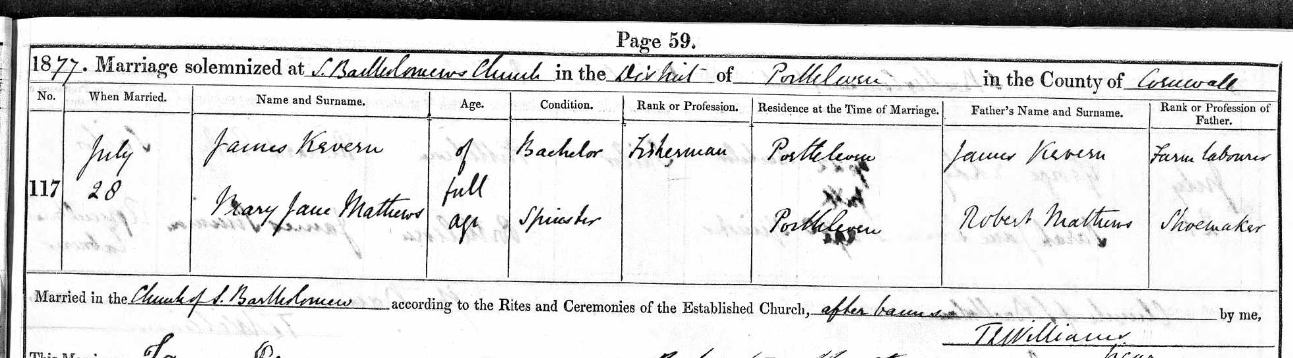 Page 59.
1877. Marriage solemnized at S. Bartholomews Church in the District of Porthleven in the County of Cornwall
No. When Married. Name and Surname. Age. Condition. Rank or Profession. Residence at the Time of Marriage. Father's Name and Surname. Rank or Profession of Father.
117 July 28
James Kevern of full age Bachelor Fisherman Porthleven James Kevern Farm labourer
Mary Jane Mathews Spinster Porthleven Robert Mathews Shoemaker
Married in the Church of S. Bartholomew according to the Rites and Ceremonies of the Established Church, after banns by me,
Williams
This Marriage